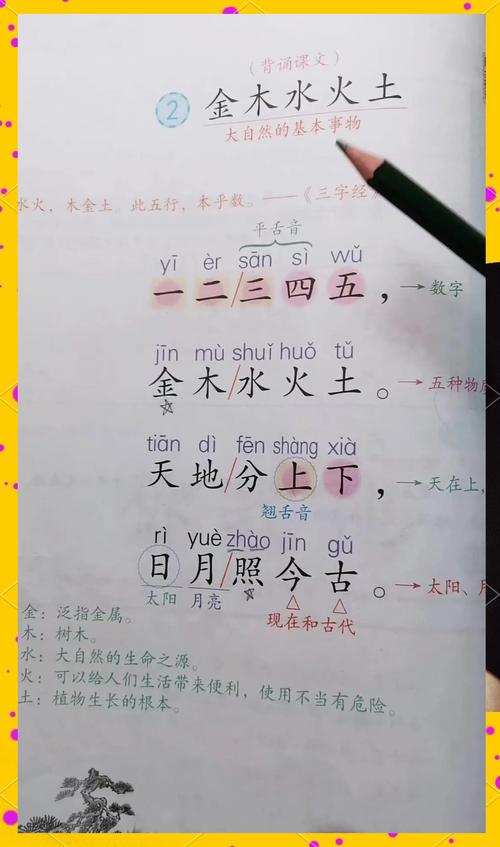 （背诵课文）
2 金木水火土
大自然的基本事物
水火，木金土。此五行，本乎数。——《三字经》
平舌音
yī èr sān sì wǔ
一二/三四五，→数字
jīn mù shuǐ huǒ tǔ
金木/水火土。→五种物
tiān dì fēn shàng xià
天地/分上下，→天在上，
翘舌音
rì yuè zhào jīn gǔ
日月/照今古。→太阳、
太阳 月亮
现在和古代
金：泛指金属。
木：树木。
水：大自然的生命之源。
火：可以给人们生活带来便利，使用不当有危险。
土：植物生长的根本。